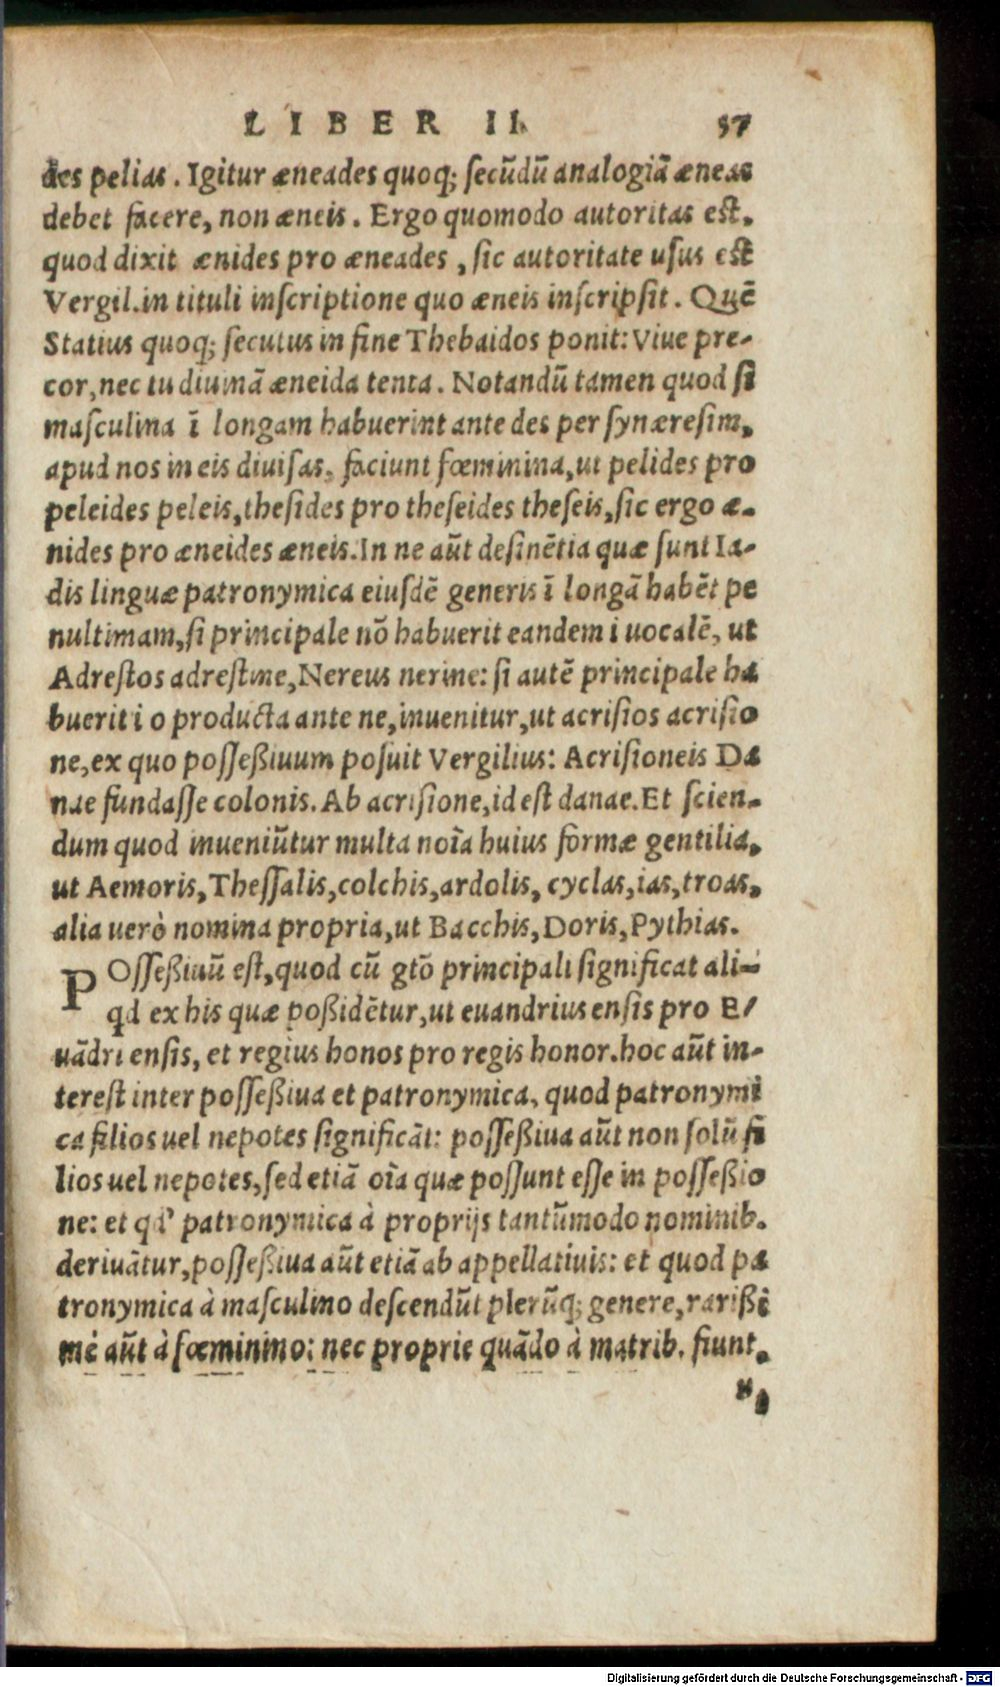 LIBER II. 57
des pelias. Igitur æneades quoq; secūdū analogiā æneas
debet facere, non æneis. Ergo quomodo autoritas est,
quod dixit ænides pro æneades, sic autoritate usus est
Vergil. in tituli inscriptione quo æneis inscripsit. Quē
Statius quoq; secutus in fine Thebaidos ponit: Viue pre-
cor, nec tu diuinā æneida tenta. Notandū tamen quod si
masculina ī longam habuerint ante des per synæresim,
apud nos in eis diuisas, faciunt fœminina, ut pelides pro
peleides peleis, thesides pro theseides theseis, sic ergo æ-
nides pro æneides æneis. In ne aūt desinētia quæ sunt Ia-
dis linguæ patronymica eiusdē generis ī longā habēt pe
nultimam, si principale nō habuerit eandem i uocalē, ut
Adrestos adrestine, Nereus nerine: si autē principale ha
buerit i o producta ante ne, inuenitur, ut acrisios acrisio
ne, ex quo possessiuum posuit Vergilius: Acrisioneis Da
nae fundasse colonis. Ab acrisione, id est danae. Et scien-
dum quod inueniūtur multa noīa huius formæ gentilia,
ut Aemoris, Thessalis, colchis, ardolis, cyclas, ias, troas,
alia uerò nomina propria, ut Bacchis, Doris, Pythias.
POssessiuū est, quod cū gtō principali significat ali-
qd ex his quæ possidētur, ut euandrius ensis pro E/
uādri ensis, et regius honos pro regis honor. hoc aūt in-
terest inter possessiua et patronymica, quod patronymi
ca filios uel nepotes significāt: possessiua aūt non solū fi
lios uel nepotes, sed etiā oīa quæ possunt esse in possessio
ne: et qd' patronymica à proprijs tantūmodo nominib.
deriuātur, possessiua aūt etiā ab appellatiuis: et quod pa
tronymica à masculino descendūt plerūq; genere, rarissi
mè aūt à fœminino: nec proprie quādo à matrib. fiunt,
Digitalisierung gefördert durch die Deutsche Forschungsgemeinschaft - DFG